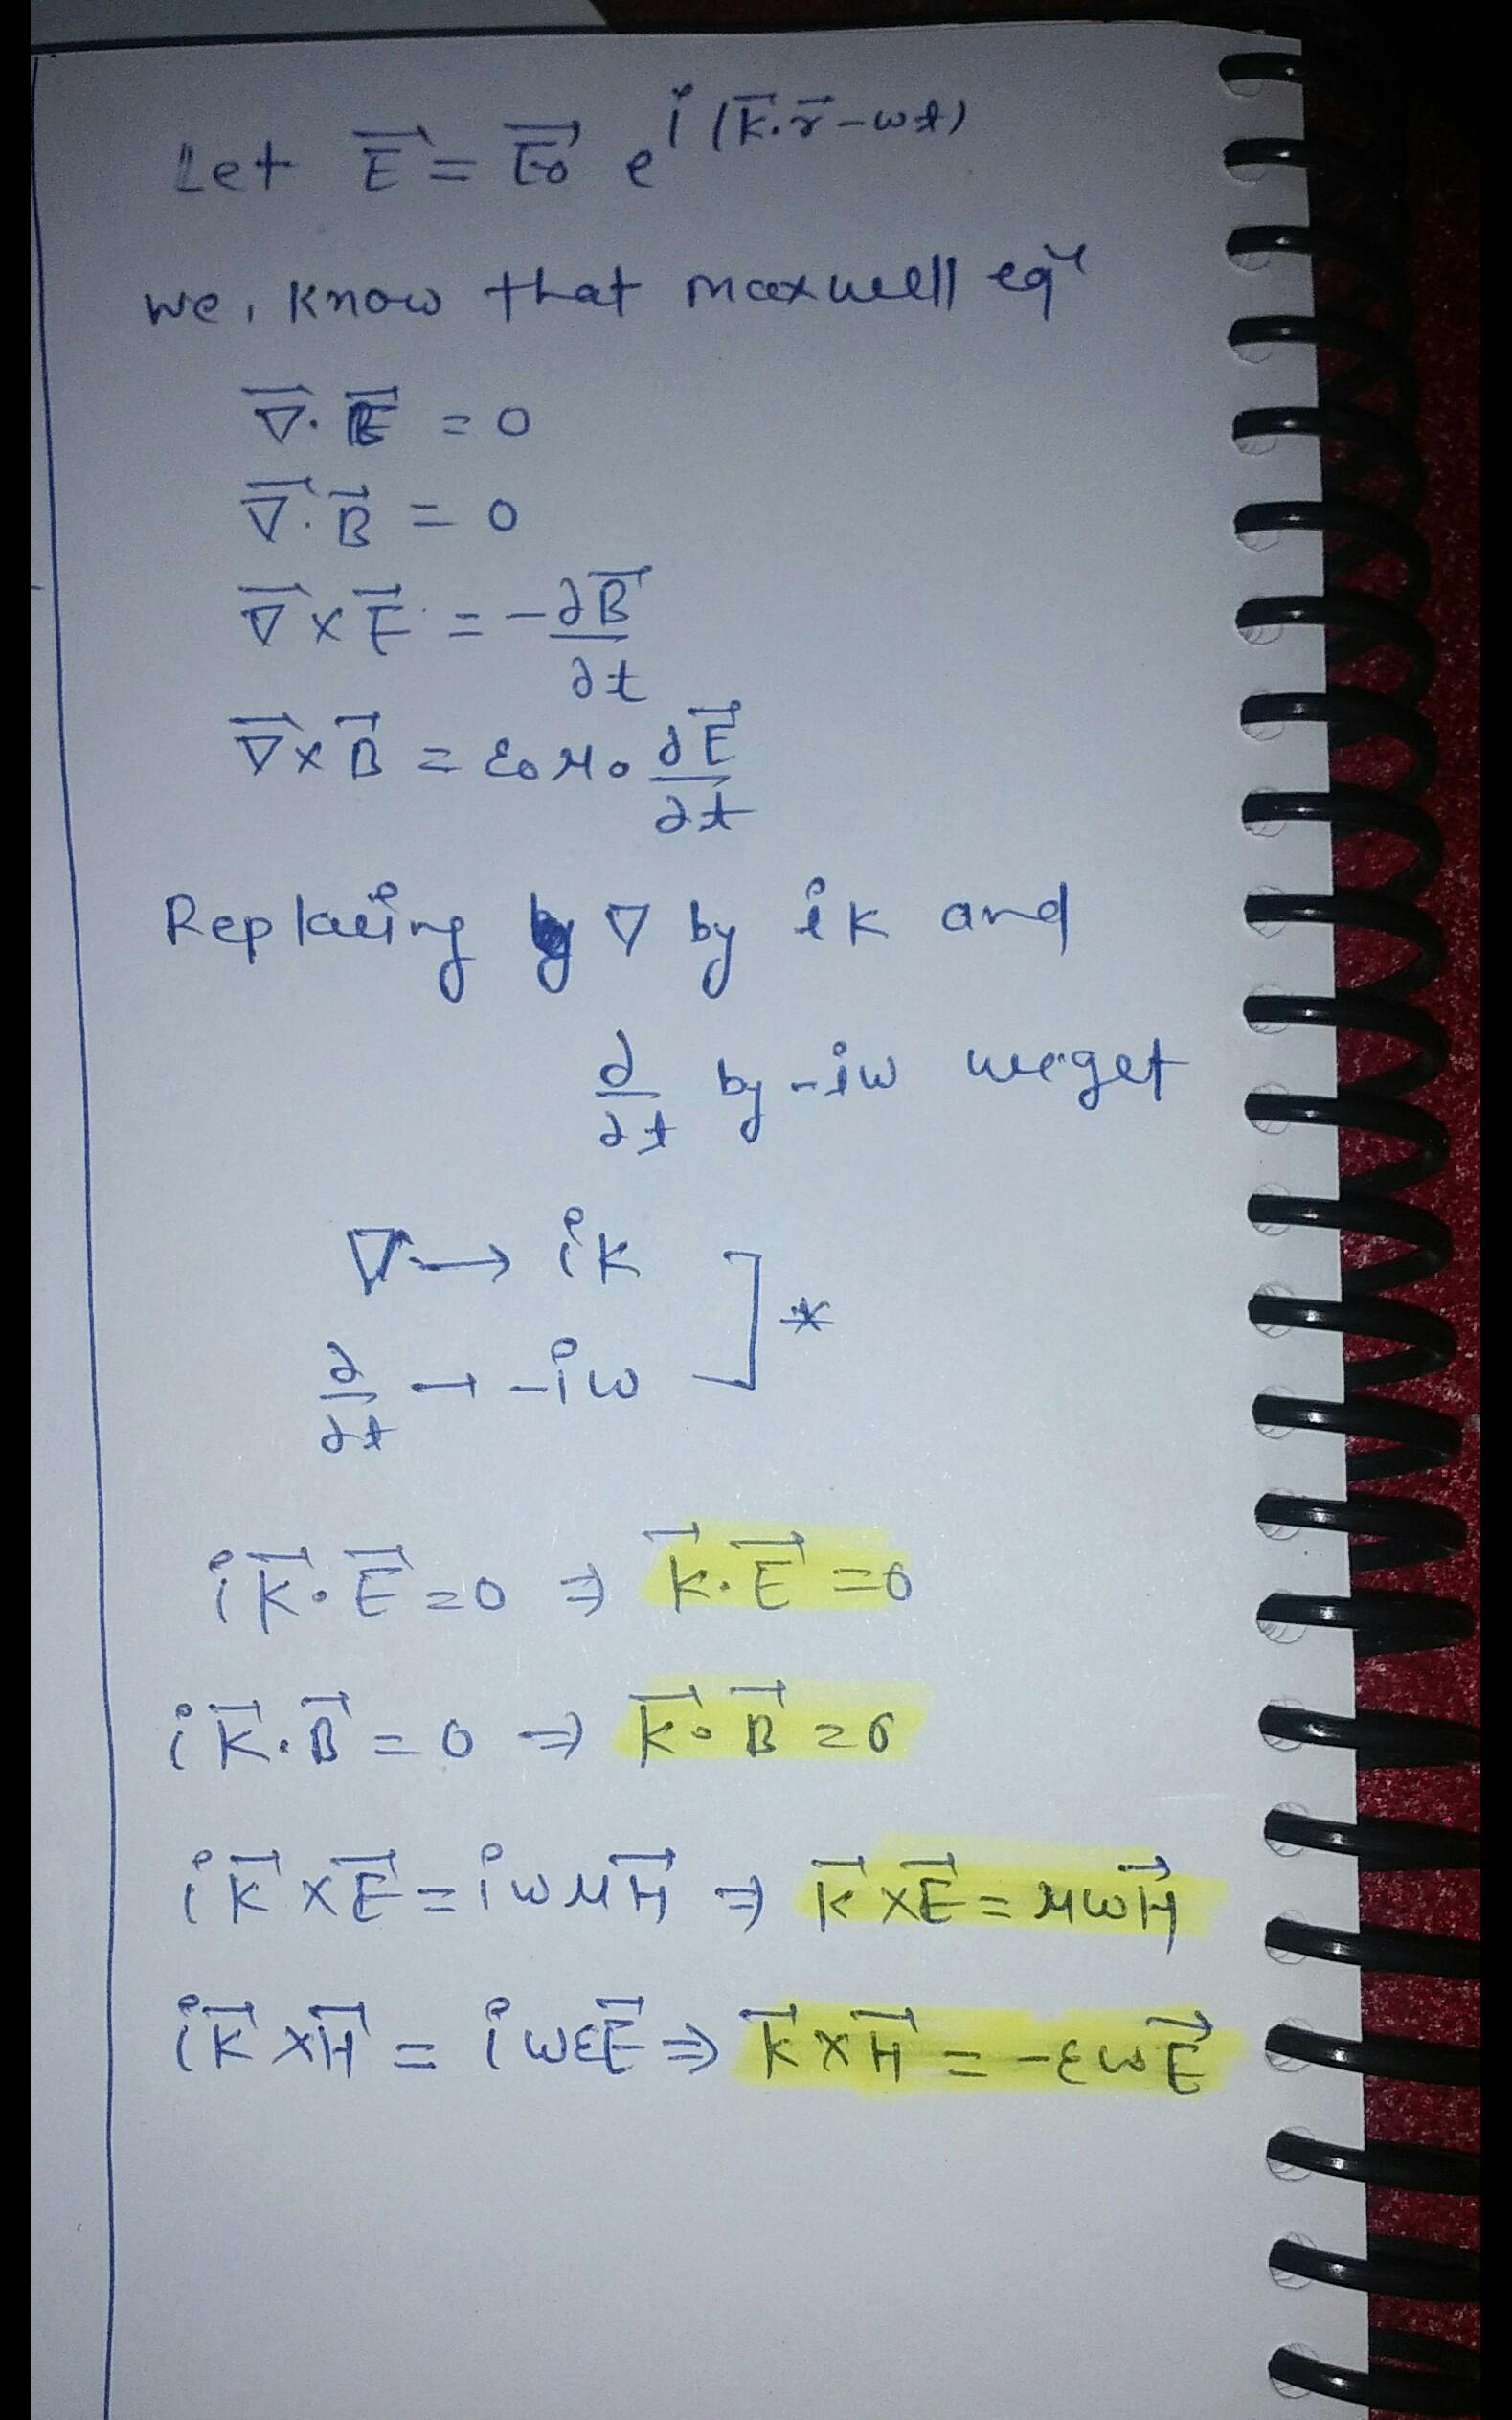 Let E⃗ = E⃗₀ e^{i(K⃗.r⃗-ωt)}
we, know that maxwell eqⁿ
∇⃗. E⃗ = 0
∇⃗. B⃗ = 0
∇⃗ × E⃗ = -∂B⃗/∂t
∇⃗ × B⃗ = ε₀ μ₀ ∂E⃗/∂t
Replacing ∇ by ik and
∂/∂t by -iω we get
∇ → ik
] *
∂/∂t → -iω
i K⃗. E⃗ = 0 ⇒ K⃗. E⃗ = 0
i K⃗. B⃗ = 0 ⇒ K⃗. B⃗ = 0
i K⃗ × E⃗ = i ω μ H⃗ ⇒ K⃗ × E⃗ = μ ω H⃗
i K⃗ × H⃗ = i ω ε E⃗ ⇒ K⃗ × H⃗ = -ε ω E⃗